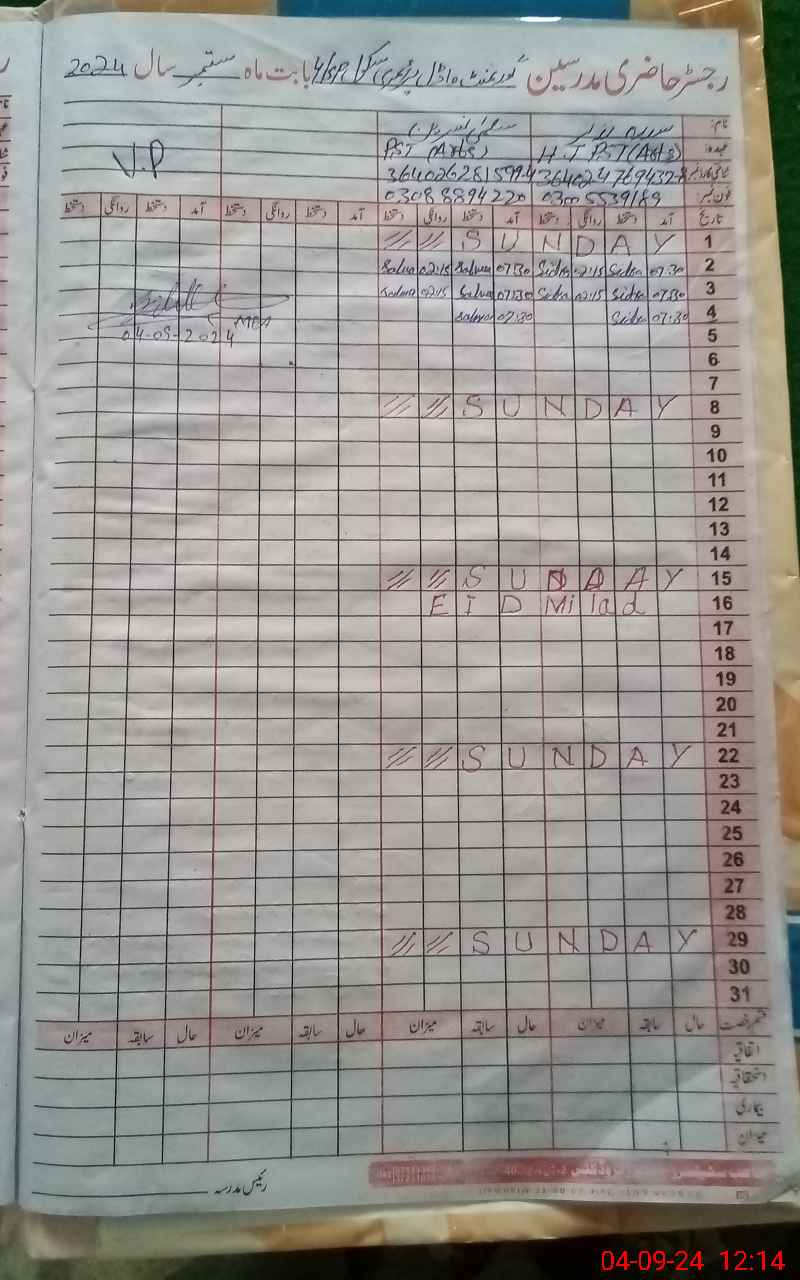 رجسٹر حاضری مدرسین گورنمنٹ ماڈل پرائمری سکول 4/SP بابت ماہ ستمبر سال 2024
نام:
عہدہ: H.T PST (Arts) PST (Arts) V.P
شناختی کارڈ نمبر 3640262815994
فون نمبر 03005539189 03088894220
تاریخ آمد دستخط روانگی دستخط آمد دستخط روانگی دستخط آمد دستخط روانگی دستخط آمد دستخط روانگی دستخط
1 SUNDAY
2 07:30 Sidra 02:15 Sidra 07:30 Salwa 02:15 Salwa
3 07:30 Sidra 02:15 Sidra 07:30 Salwa 02:15 Salwa
4 07:30 Sidra 07:30 Salwa
MEA
04-09-2024
5
6
7
8 SUNDAY
9
10
11
12
13
14
15 SUNDAY
16 EID Milad
17
18
19
20
21
22 SUNDAY
23
24
25
26
27
28
29 SUNDAY
30
31
قسم رخصت حال سابقہ میزان حال سابقہ میزان حال سابقہ میزان حال سابقہ میزان
اتفاقیہ
استحقاقیہ
بیماری
میزان
رئیس مدرسہ
04-09-24 12:14